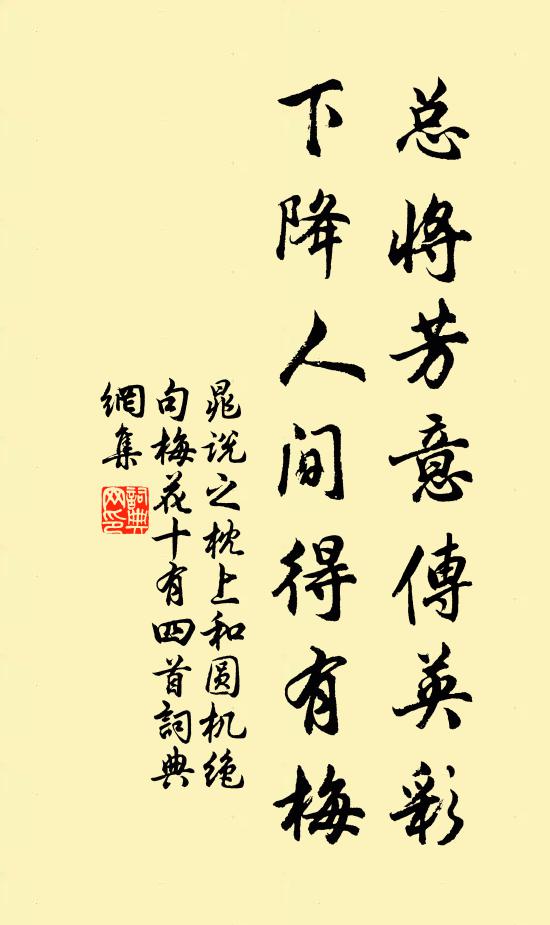 总將芳意傳英彩
下降人间得有梅
晁说之枕上和圆机绝
句梅花十有四首詞典
網集
詞典
网印